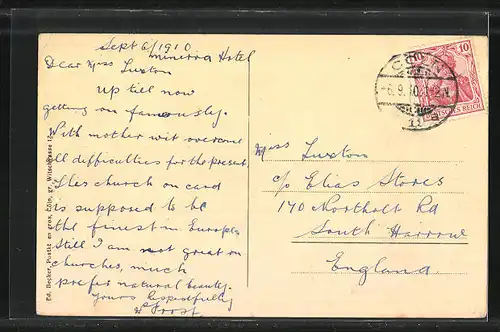 Sept 6/1910
Minerva Hotel
Dear Miss Luxton
Up till now
getting on famously.
With mother wit overcome
all difficulties for the present
This church on card
is supposed to be
the finest in Europe
Still I am not great on
churches, much
prefer natural beauty.
Yours respectfully
W Frost
Ed. Becker, en gros, Cöln, gr. Witschgasse
10
DEUTSCHES REICH
CÖLN
-6.9.10
Miss Luxton
c/o Elias Stores
170 Northolt Rd
South Harrow
England